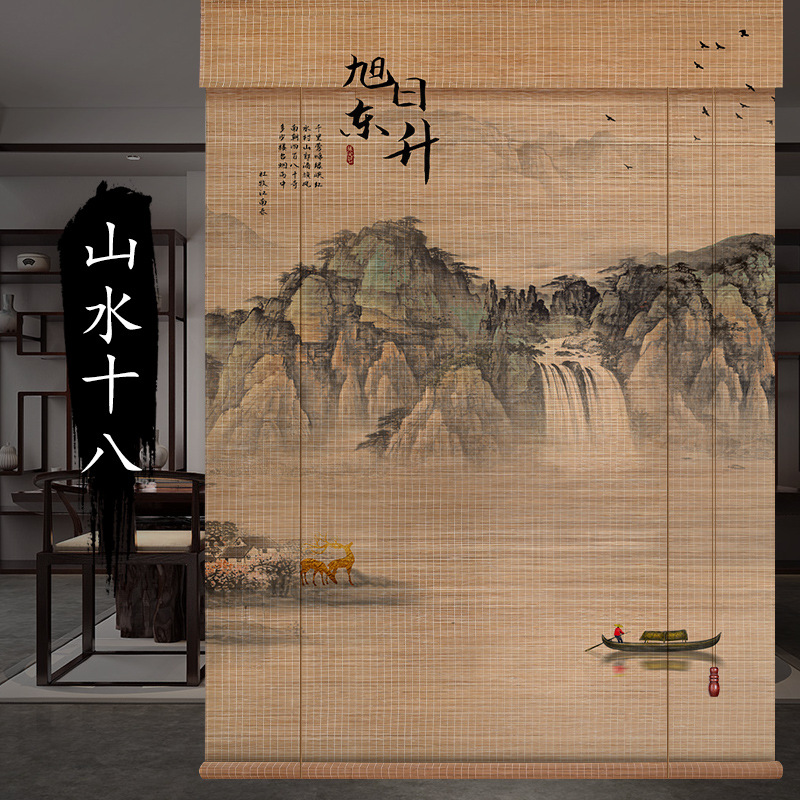 旭日东升
千里莺啼绿映红
水村山郭酒旗风
南朝四百八十寺
多少楼台烟雨中
杜牧江南春
山水十八